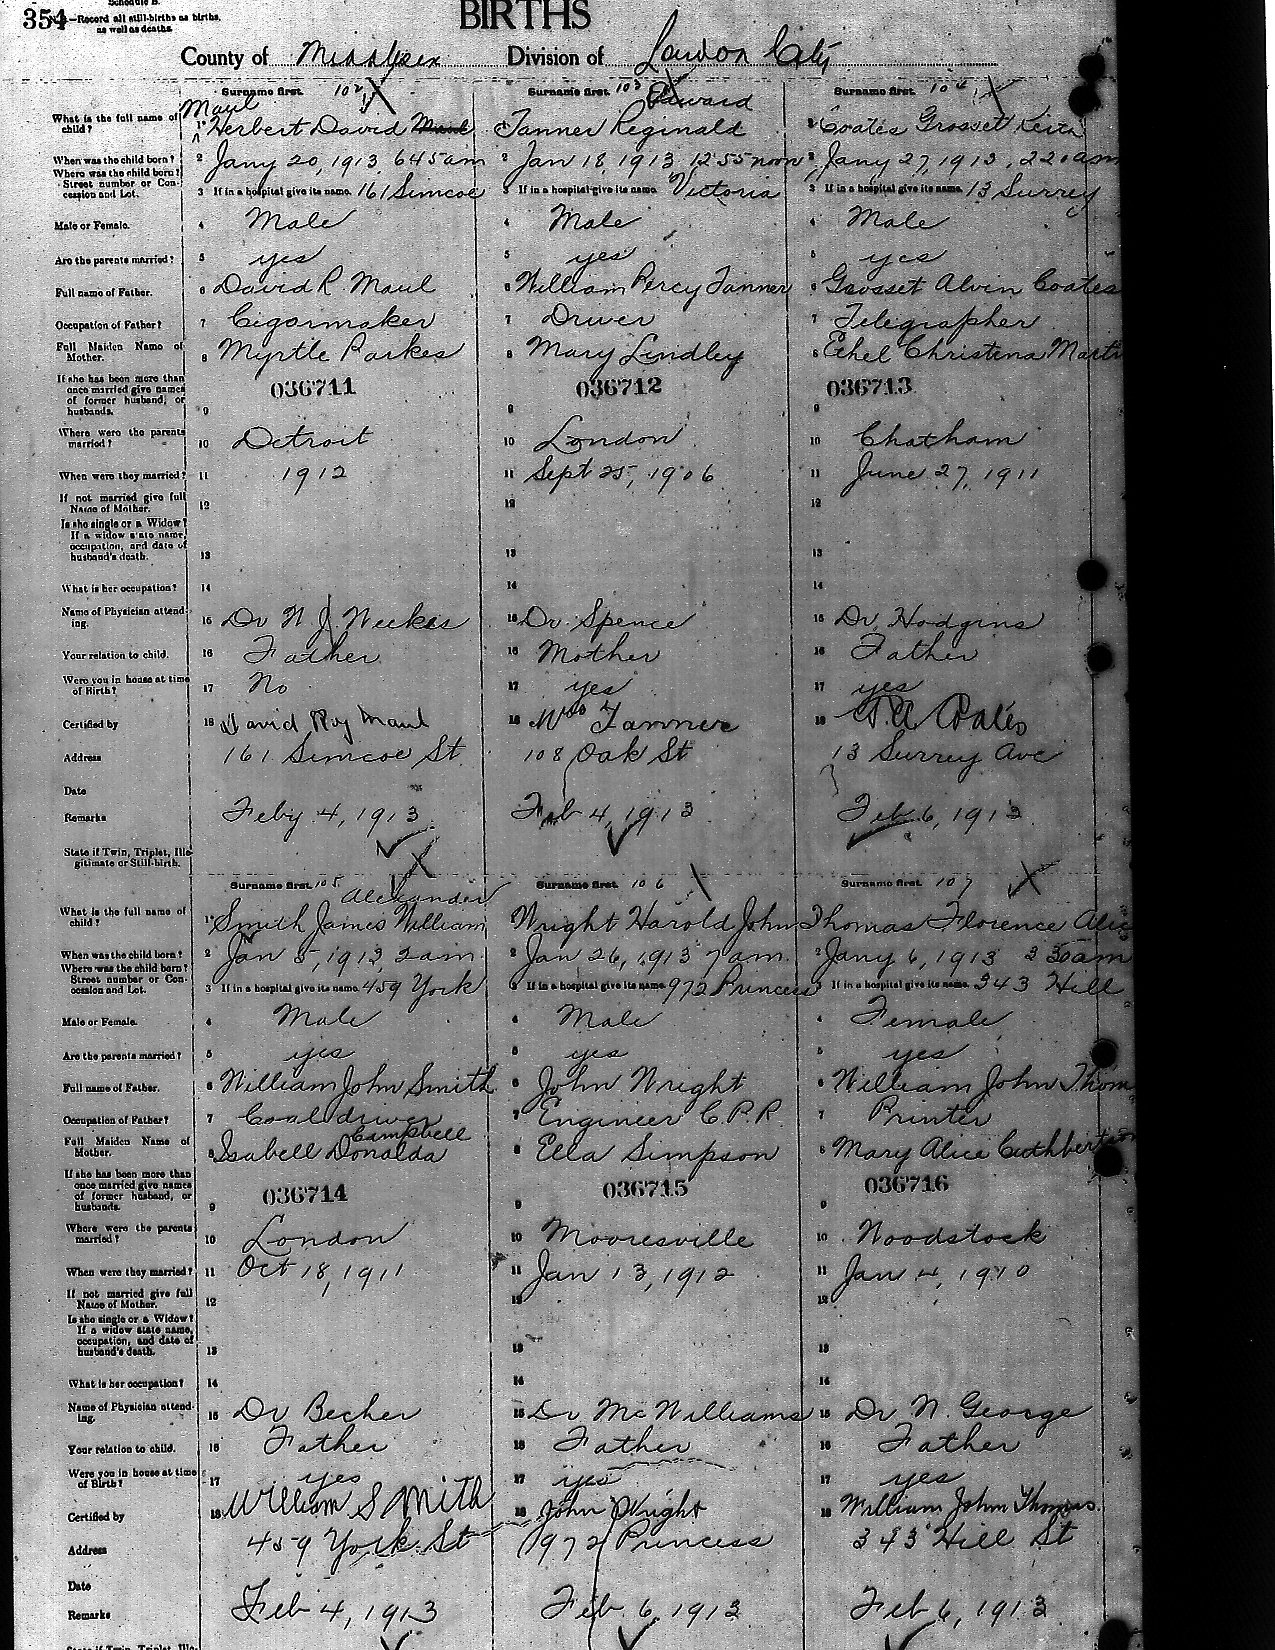 Schedule B.
354
—Record all still-births as births, as well as deaths.
BIRTHS
County of Middlesex Division of London City
Surname first. 102 Surname first. 103 Surname first. 104
Maul Edward
What is the full name of child? 1 Herbert David Maul 1 Tanner Reginald 1 Coates Grosset Keith
When was the child born? 2 Jany 20, 1913, 645 am 2 Jan 18, 1913, 12 55 noon 2 Jany 27, 1913, 220 am
Where was the child born? Street number or Concession and Lot. 3 If in a hospital give its name. 161 Simcoe 3 If in a hospital give its name. Victoria 3 If in a hospital give its name. 13 Surrey
Male or Female. 4 Male 4 Male 4 Male
Are the parents married? 5 yes 5 yes 5 yes
Full name of Father. 6 David R. Maul 6 William Percy Tanner 6 Grosset Alvin Coates
Occupation of Father? 7 Cigarmaker 7 Driver 7 Telegrapher
Full Maiden Name of Mother. 8 Myrtle Parkes 8 Mary Lindley 8 Ethel Christena
If she has been more than once married give names of former husband, or husbands. 9 036711 9 036712 9 036713
Where were the parents married? 10 Detroit 10 London 10 Chatham
When were they married? 11 1912 11 Sept 25, 1906 11 June 27, 1911
If not married give full Name of Mother. 12 12 12
Is she single or a Widow? If a widow state name, occupation, and date of husband's death. 13 13 13
What is her occupation? 14 14 14
Name of Physician attending. 15 Dr N J Weekes 15 Dr. Spence 15 Dr. Hodgins
Your relation to child. 16 Father 16 Mother 16 Father
Were you in house at time of Birth? 17 No 17 yes 17 yes
Certified by 18 David Roy Maul 18 Mrs Tanner 18 G. A. Coates
Address 161 Simcoe St. 108 Oak St 13 Surrey Ave
Date
Remarks Feby 4, 1913 Feb 4, 1913 Feb 6, 1913
State if Twin, Triplet, Illegitimate or Still-birth.
Surname first. 105 Surname first. 106 Surname first. 107
Alexander
What is the full name of child? 1 Smith James William 1 Wright Harold John 1 Thomas Florence Alice
When was the child born? 2 Jan 5, 1913, 2 am 2 Jan 26, 1913 7 am. 2 Jany 6, 1913 3 30 am
Where was the child born? Street number or Concession and Lot. 3 If in a hospital give its name. 459 York 3 If in a hospital give its name. 972 Princess 3 If in a hospital give its name. 343 Hill
Male or Female. 4 Male 4 Male 4 Female
Are the parents married? 5 yes 5 yes 5 yes
Full name of Father. 6 William John Smith 6 John Wright 6 William John Thom
Occupation of Father? 7 Coal driver 7 Engineer C.P.R. 7 Printer
Campbell
Full Maiden Name of Mother. 8 Isabell Donalda 8 Ella Simpson 8 Mary Alice Cuthbertson
If she has been more than once married give names of former husband, or husbands. 9 036714 9 036715 9 036716
Where were the parents married? 10 London 10 Mooresville 10 Woodstock
When were they married? 11 Oct 18, 1911 11 Jan 13, 1912 11 Jan 4, 1910
If not married give full Name of Mother. 12 12 12
Is she single or a Widow? If a widow state name, occupation, and date of husband's death. 13 13 13
What is her occupation? 14 14 14
Name of Physician attending. 15 Dr Becher 15 Dr McWilliams 15 Dr W. George
Your relation to child. 16 Father 16 Father 16 Father
Were you in house at time of Birth? 17 yes 17 yes 17 yes
Certified by 18 William Smith 18 John Wright 18 William John Thomas.
Address 459 York St 972 Princess 343 Hill St
Date
Remarks Feb 4, 1913 Feb. 6, 1913 Feb 6, 1913
State if Twin, Triplet, Ille-